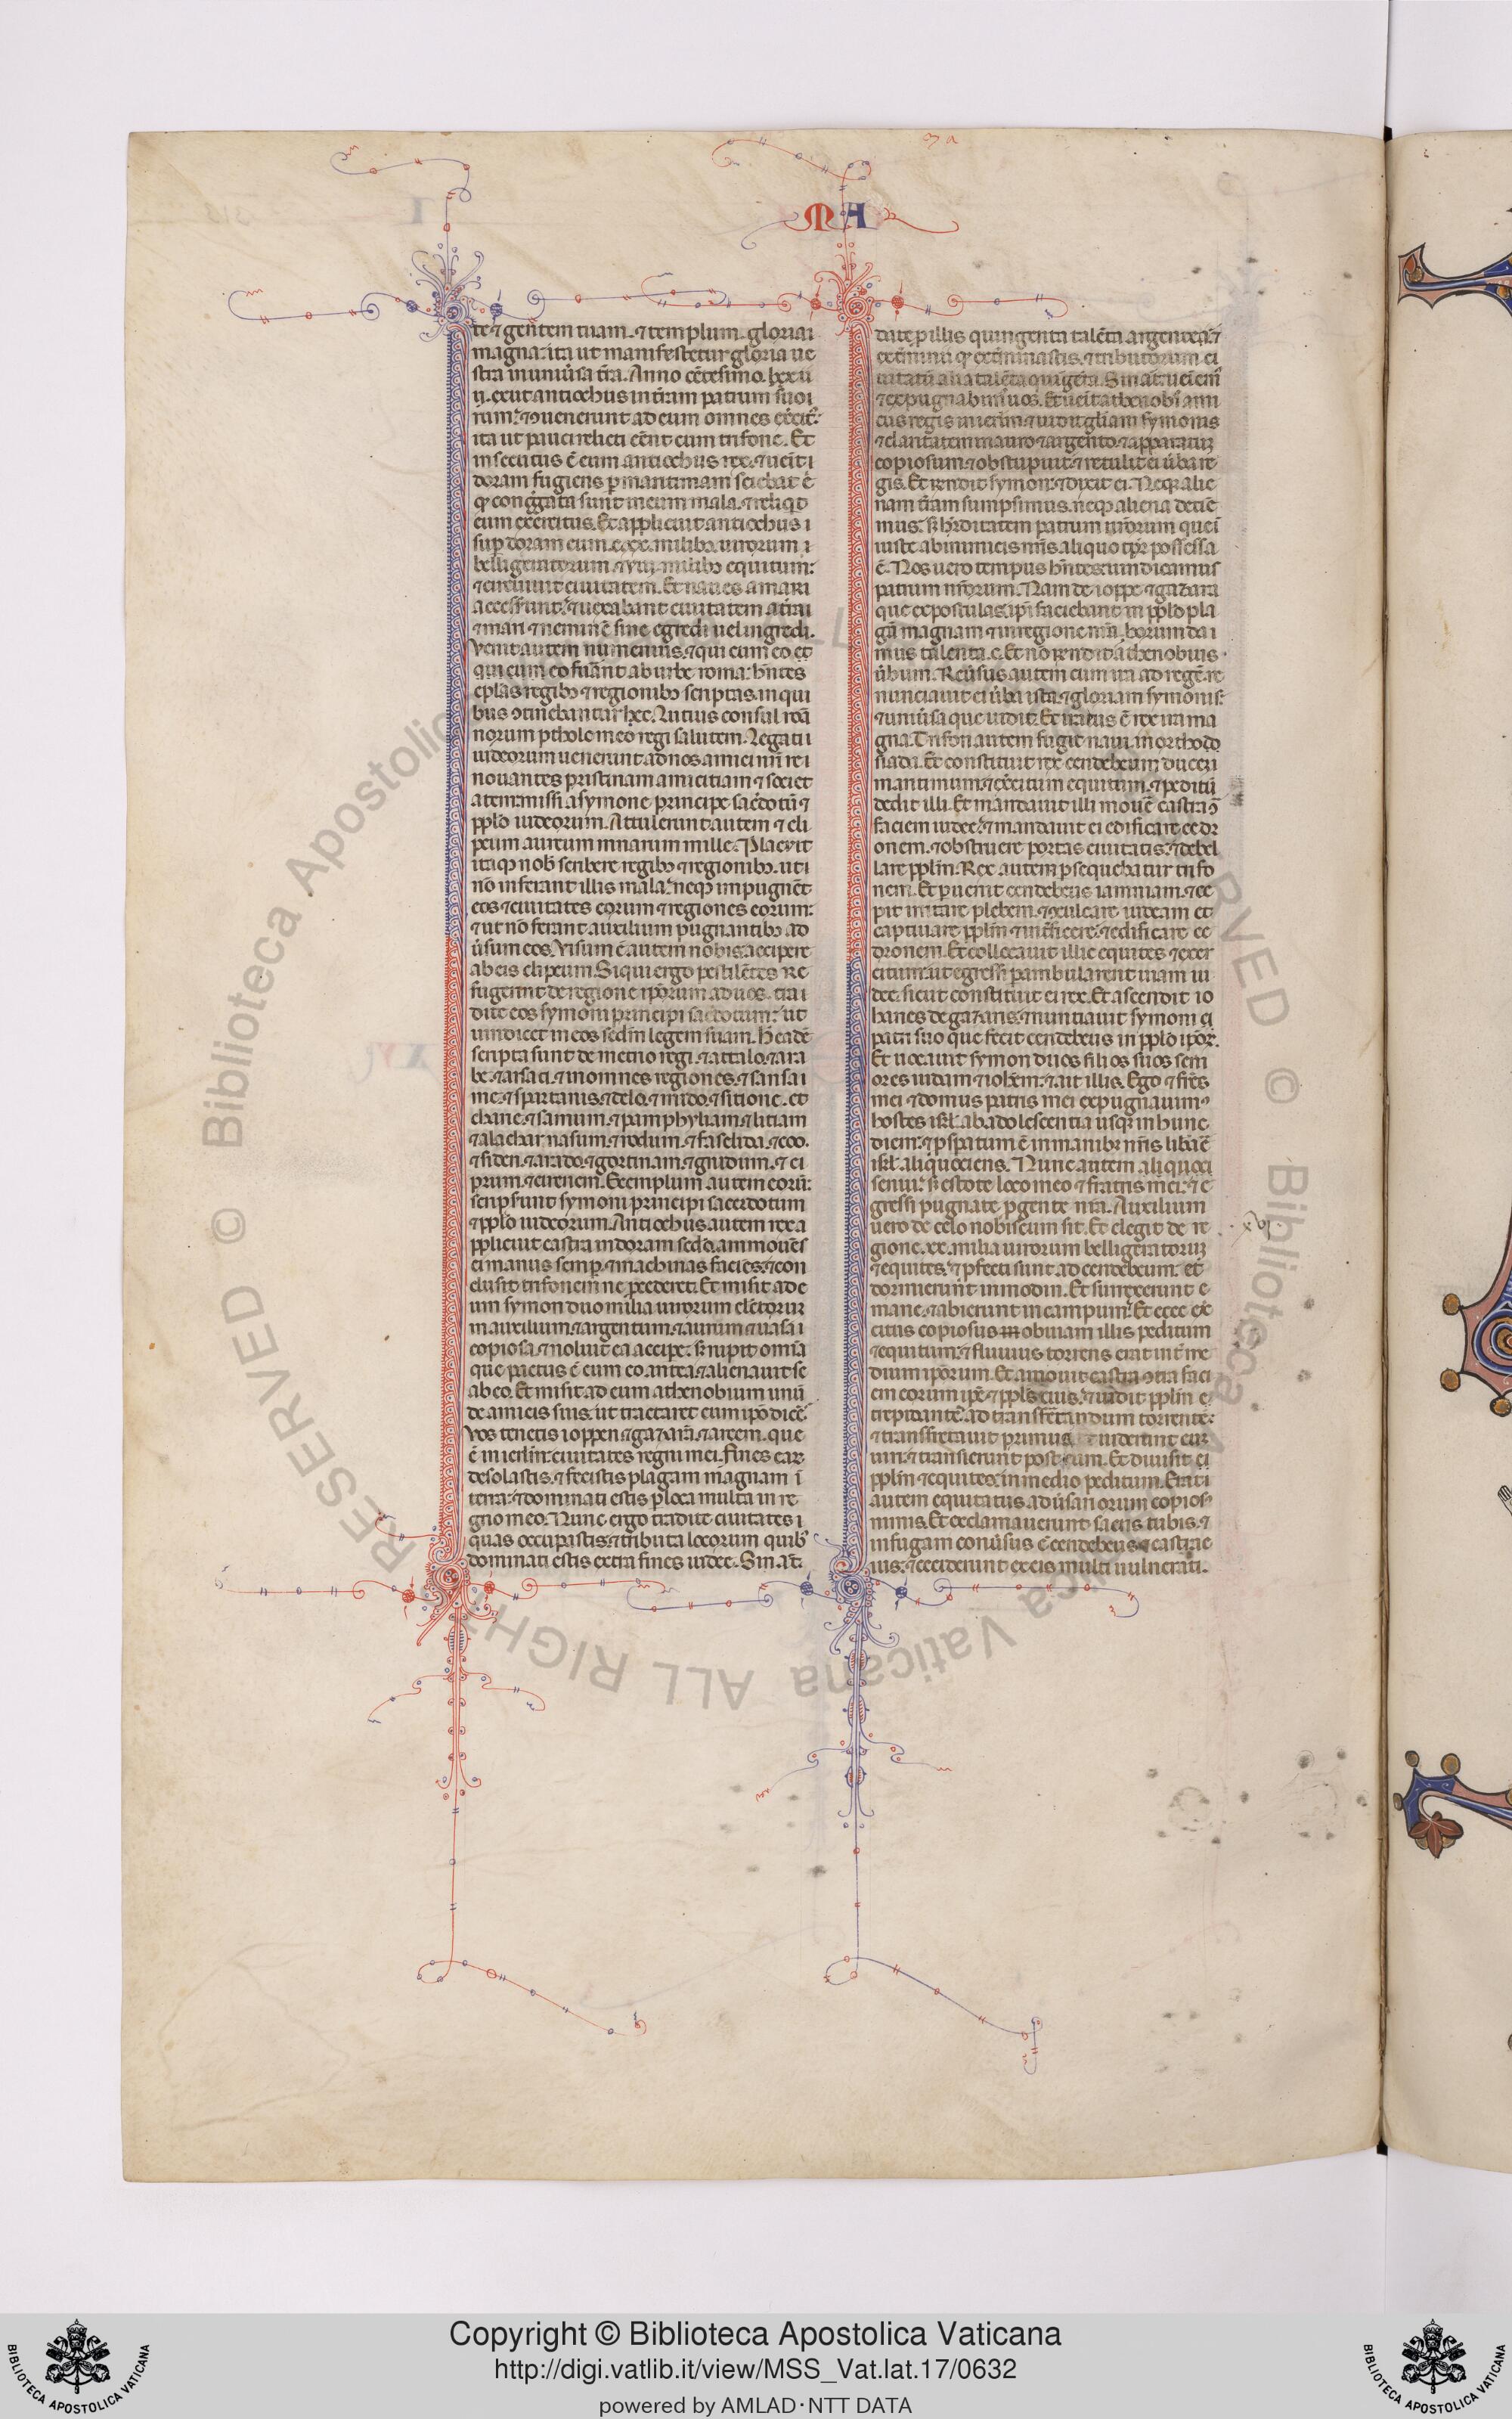 MA
te ⁊ gentem tuam. ⁊ templum. gloria
magna: ita ut manifestetur gloria ue
stra in uniũsa t̃ra. Anno cẽtesimo. lxx
exiit antiochus in t̃ram patrum suo
rum: ⁊ ꝯuenerunt ad eum omnes
ita ut pauci relicti eẽnt cum trifone. Et
insecutus ẽ eum antiochus rex. ⁊ uenit
doram fugiens ꝑ maritimam sciebat
qꝫ congregata sunt in eum mala. ⁊ reliqͥt
eum exercitus. Et applicuit antiochus
suꝑ doram cum. milibꝫ uirorum
belligeratorum. ⁊ milibꝫ equitum:
⁊ circuiuit ciuitatem. Et naues a mari
accesserunt: ⁊ uexabant ciuitatem a t̃ra
⁊ mari ⁊ neminẽ sine egredi uel ingredi.
Venit autem numenius. ⁊ qui cum eo
qui cum eo fuãnt ab urbe roma: hñtes
ep̃las regibꝫ ⁊ regionibꝫ scriptas. in qui
bus ꝯtinebantur hec. Lucius consul roã
norum ptholemeo regi salutem. Legati
iudeorum uenerunt ad nos amici nr̃i re
nouantes pristinam amicitiam ⁊ societ
atem: missi a symone principe sac̃dotũ ⁊
pplo iudeorum. Attulerunt autem ⁊ cli
peum aureum mnarum mille. Placuit
itaqꝫ nob scribere regibꝫ ⁊ regionibꝫ. uti
nõ inferant illis mala: neqꝫ impugnẽt
eos ⁊ ciuitates eorum ⁊ regiones eorum:
⁊ ut nõ ferant auxilium pugnantibꝫ ad
ũsum eos. Visum ẽ autem nobis accipere
ab eis clipeum. Si qui ergo pestilẽtes re
fugerint de regione ipõrum ad uos. tra
dite eos symoni principi sacerdotum: ut
uindicet in eos sedm legem suam. Hec eadẽ
scripta sunt demetrio regi. ⁊ attalo. ⁊ ara
be. ⁊ arsaci. ⁊ in omnes regiones. ⁊ sansa
me. ⁊ spartanis. ⁊ delo. ⁊ mido. ⁊ sitione. et
charie. ⁊ samum. ⁊ pamphyliam. ⁊ litiam
⁊ alacharnasum. ⁊ rodum. ⁊ faselida. ⁊ coo.
⁊ siden. ⁊ arado. ⁊ gortinam. ⁊ gnidum. ⁊ ci
prum. ⁊ cirenem. Exemplum autem eorũ:
scripserunt symoni principi sacerdotum
⁊ pplo iudeorum. Antiochus autem rex a
pplicuit castra in doram sedo. ammouẽs
ei manus semꝑ. ⁊ machinas faciẽs. ⁊ con
clusit trifonem ne ꝓcederet. Et misit ad e
um symon duo milia uirorum electorum
in auxilium. ⁊ argentum. ⁊ aurum ⁊ uasa
copiosa. ⁊ noluit ea accipe. s; rupit omnia
que pactus ẽ cum eo antea. ⁊ alienauit se
ab eo. Et misit ad eum athenobium unũ
de amicis suis. ut tractaret cum ipõ dicẽs
Vos tenetis ioppen ⁊ gazarã. ⁊ arcem. que
ẽ in ierlm̃. ciuitates regni mei. Fines earꝫ
desolastis. ⁊ fecistis plagam magnam ĩ
terra: ⁊ dominati estis ꝑ loca multa in re
gno meo. Nunc ergo tradite ciuitates
quas occupastis. ⁊ tributa locorum quibꝫ
dominati estis extra fines iudee. Sin aũt:
date ꝓ illis quingenta talẽta argentea. ⁊
exterminii qꝫ exterminastis. ⁊ tributorum ci
uitatũ alia talẽta quingẽta. Sin aũt: ueniem̃
⁊ expugnabim̃ uos. Et uenit athenobi ami
cus regis in ierlm̃. ⁊ uidit gl̃iam symonis
⁊ claritatem in auro ⁊ argento. ⁊ apparatum
copiosum. ⁊ obstupuit. ⁊ retulit ei ũba re
gis. Et rendit symon. ⁊ dixit ei. Neqꝫ alie
nam t̃ram sumpsimus. neqꝫ aliena detine
mus: s; hr̃ditatem patrum nr̃orum que
iuste ab inimicis nr̃is aliquo tp̃r possessa
ẽ. Nos uero tempus hñtes. uindicamus
patrum nr̃orum. Nam de ioppe ⁊ gazara
que expostulas. ip̃i faciebant in pplo pla
gã magnam ⁊ in regione nr̃a. horum da
mus talenta. c. Et nõ rendit athenobius
ũbum. Reũsus autem cum ira ad regẽ. re
nunciauit ei ũba ista. ⁊ gloriam symonis.
⁊ uniũsa que uidit. Et iratus ẽ rex ira ma
gna. Trifon autem fugit naui in orthodo
siada. Et constituit rex cendebeum ducem
maritimum. ⁊ exẽcitum equitum. ⁊ peditũ
dedit illi. Et mandauit illi mouẽ castra ꝯ
faciem iudee. ⁊ mandauit ei edificare cedr
onem. ⁊ obstruere portas ciuitatis. ⁊ debel
lare pplm̃. Rex autem ꝑsequebatur trifo
nem. Et ꝑuenit cendebeus iamniam. ⁊ ce
pit irritare plebem. ⁊ ꝯculcare iudeam et
captiuare pplm̃ ⁊ int̃ficere. ⁊ edificare ce
dronem. Et collocauit illic equites ⁊ exer
citum: ut egressi ꝑambularent uiam iu
dee. sicut constituit ei rex. Et ascendit io
hanes de gazaris. ⁊ nuntiauit symoni
patri suo que fecit cendebeus in pplo ipõr.
Et uocauit symon duos filios suos sem
ores iudam ⁊ iohẽm. ⁊ ait illis. Ego ⁊ fr̃es
mei ⁊ domus patris mei expugnauim᷒
hostes isrl. ab adolescentia usqꝫ in hunc
diem: ⁊ ꝓspatum ẽ in manibꝫ nr̃is libãe
isrl. aliquociens. Nunc autem aliquoci
senui: s; estote loco meo ⁊ fratris mei. ⁊ e
gressi pugnate ꝓ gente nr̃a. Auxilium
uero de celo nobiscum sit. Et elegit de re
gione. xx. milia uirorum belligeratorum
⁊ equites. ⁊ ꝓfecti sunt ad cendebeum. et
dormierunt in modin. Et surrexerunt
mane. ⁊ abierunt in campum. Et ecce ex
citus copiosus obuiam illis peditum
⁊ equitum. ⁊ fluuius torrens erat int̃ me
dium ipõrum. Et amouit castra ꝯtra faci
em eorum ip̃e ⁊ ppl̃s eius. ⁊ uidit pplm̃
trepidantẽ. ad transfretandum torrentẽ:
⁊ transfretauit primus. ⁊ uiderunt eum
uiri. ⁊ transierunt post eum. Et diuisit
pplm̃ ⁊ equites. in medio peditum. Erat
autem equitatus adũsariorum copios᷒
nimis. Et exclamauerunt sacris tubis. ⁊
in fugam conũsus ẽ cendebeus ⁊ castra e
ius: ⁊ ceciderunt ex eis multi uulnerati.
xvi
Copyright © Biblioteca Apostolica Vaticana
http://digi.vatlib.it/view/MSS_Vat.lat.17/0632
powered by AMLAD · NTT DATA
BIBLIOTECA APOSTOLICA VATICANA
BIBLIOTECA APOSTOLICA VATICANA
© Biblioteca Apostolica Vaticana ALL RIGHTS RESERVED